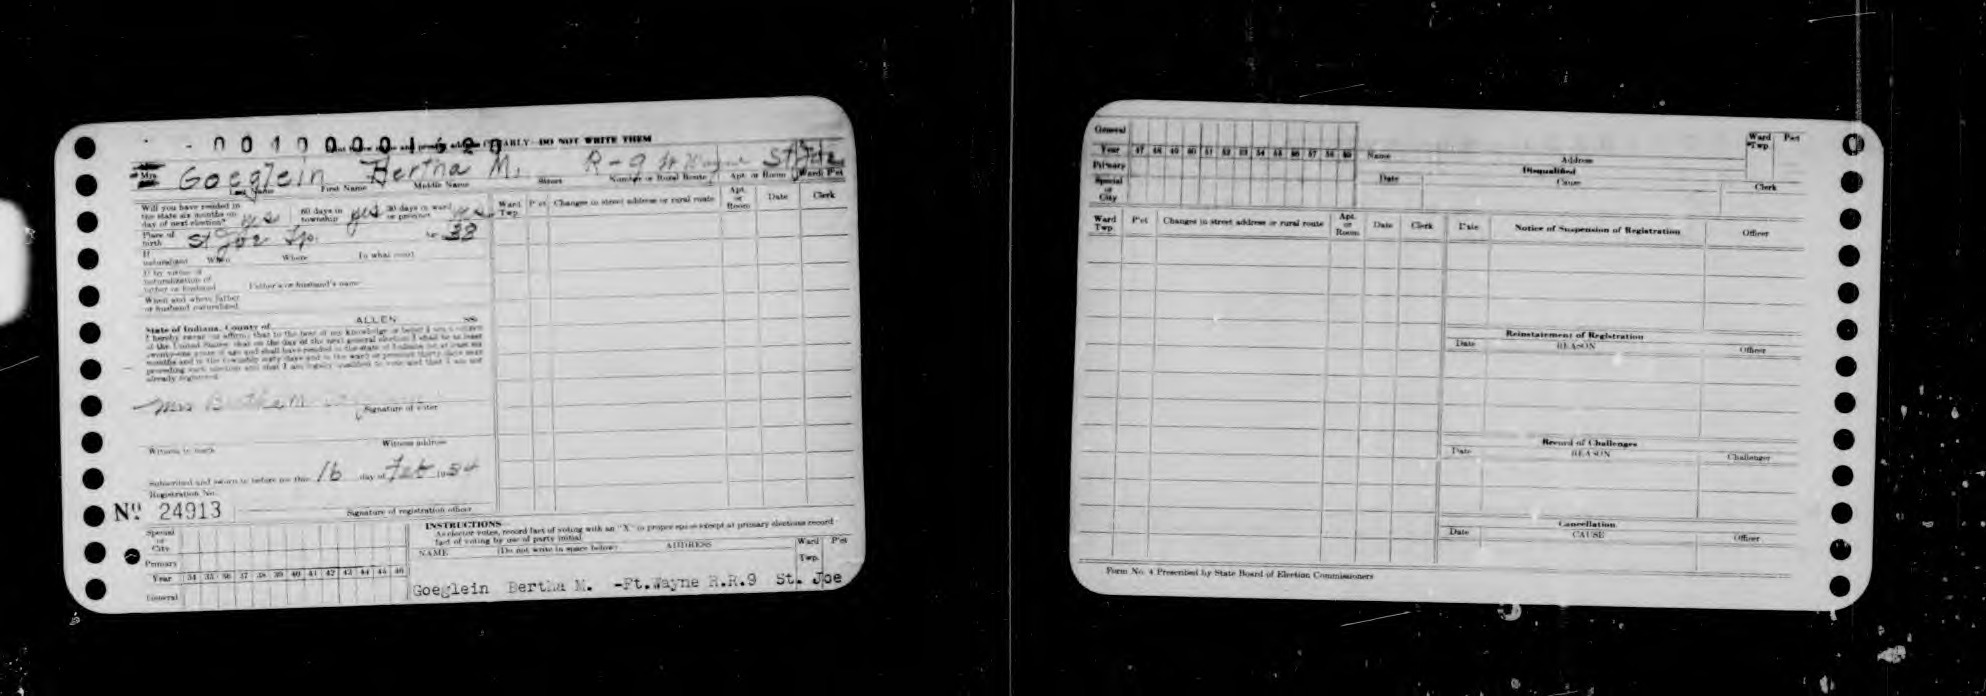 00100001620
CLEARLY—DO NOT WRITE THEM
Mrs. Goeglein Bertha M. R-9 Ft Wayne St Joe
Last Name First Name Middle Name Street Number or Rural Route Apt. or Room Ward P'ct
Will you have resided in the state six months on day of next election? yes 60 days in township yes 30 days in ward or precinct yes
Place of birth St Joe Tp. 38
If naturalized When Where In what court
If by virtue of naturalization of father or husband Father's or husband's name
When and where father or husband naturalized
State of Indiana, County of ALLEN SS:
I hereby swear (or affirm) that to the best of my knowledge or belief I am a citizen
of the United States; that on the day of the next general election I shall be at least
twenty-one years of age and shall have resided in the state of Indiana for at least six
months and in the township sixty days and in the ward or precinct thirty days next
preceding such election and that I am legally qualified to vote and that I am not
already registered.
Mrs Bertha M
Signature of voter
Witness to mark Witness address
Subscribed and sworn to before me this 16 day of Feb 1934
Registration No.
No. 24913 Signature of registration officer
Ward Twp. P'ct Changes in street address or rural route Apt. or Room Date Clerk
Special or City
Primary
Year 34 35 36 37 38 39 40 41 42 43 44 45 46
General
INSTRUCTIONS
As elector votes, record fact of voting with an "X" in proper space except at primary elections record
fact of voting by use of party initial
NAME (Do not write in space below) ADDRESS Ward Twp. P'ct
Goeglein Bertha M. -Ft.Wayne R.R.9 St. Joe
General
Year 47 48 49 50 51 52 53 54 55 56 57 58 59
Primary
Special or City
Name Address Ward Twp. P'ct
Disqualified
Date Cause Clerk
Ward Twp. P'ct Changes in street address or rural route Apt. or Room Date Clerk
Date Notice of Suspension of Registration Officer
Reinstatement of Registration
Date REASON Officer
Record of Challenges
Date REASON Challenger
Cancellation
Date CAUSE Officer
Form No. 4 Prescribed by State Board of Election Commissioners